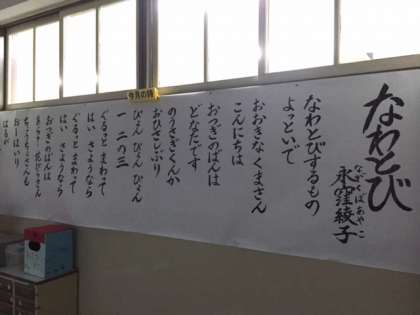 今月の詩
なわとび
永窪綾子
ながくぼあやこ
なわとびするもの
よっといで
おおきな くまさん
こんにちは
おつぎのばんは
どなたです
のうさぎくんか
おひさしぶり
一 二の三
ぴょん ぴょん ぴょん
ぐるっと まわって
はい さようなら
ぐるっと まわって
はい さようなら
おつぎのばんは
ちょうちょさんも
おーはいり
はるが